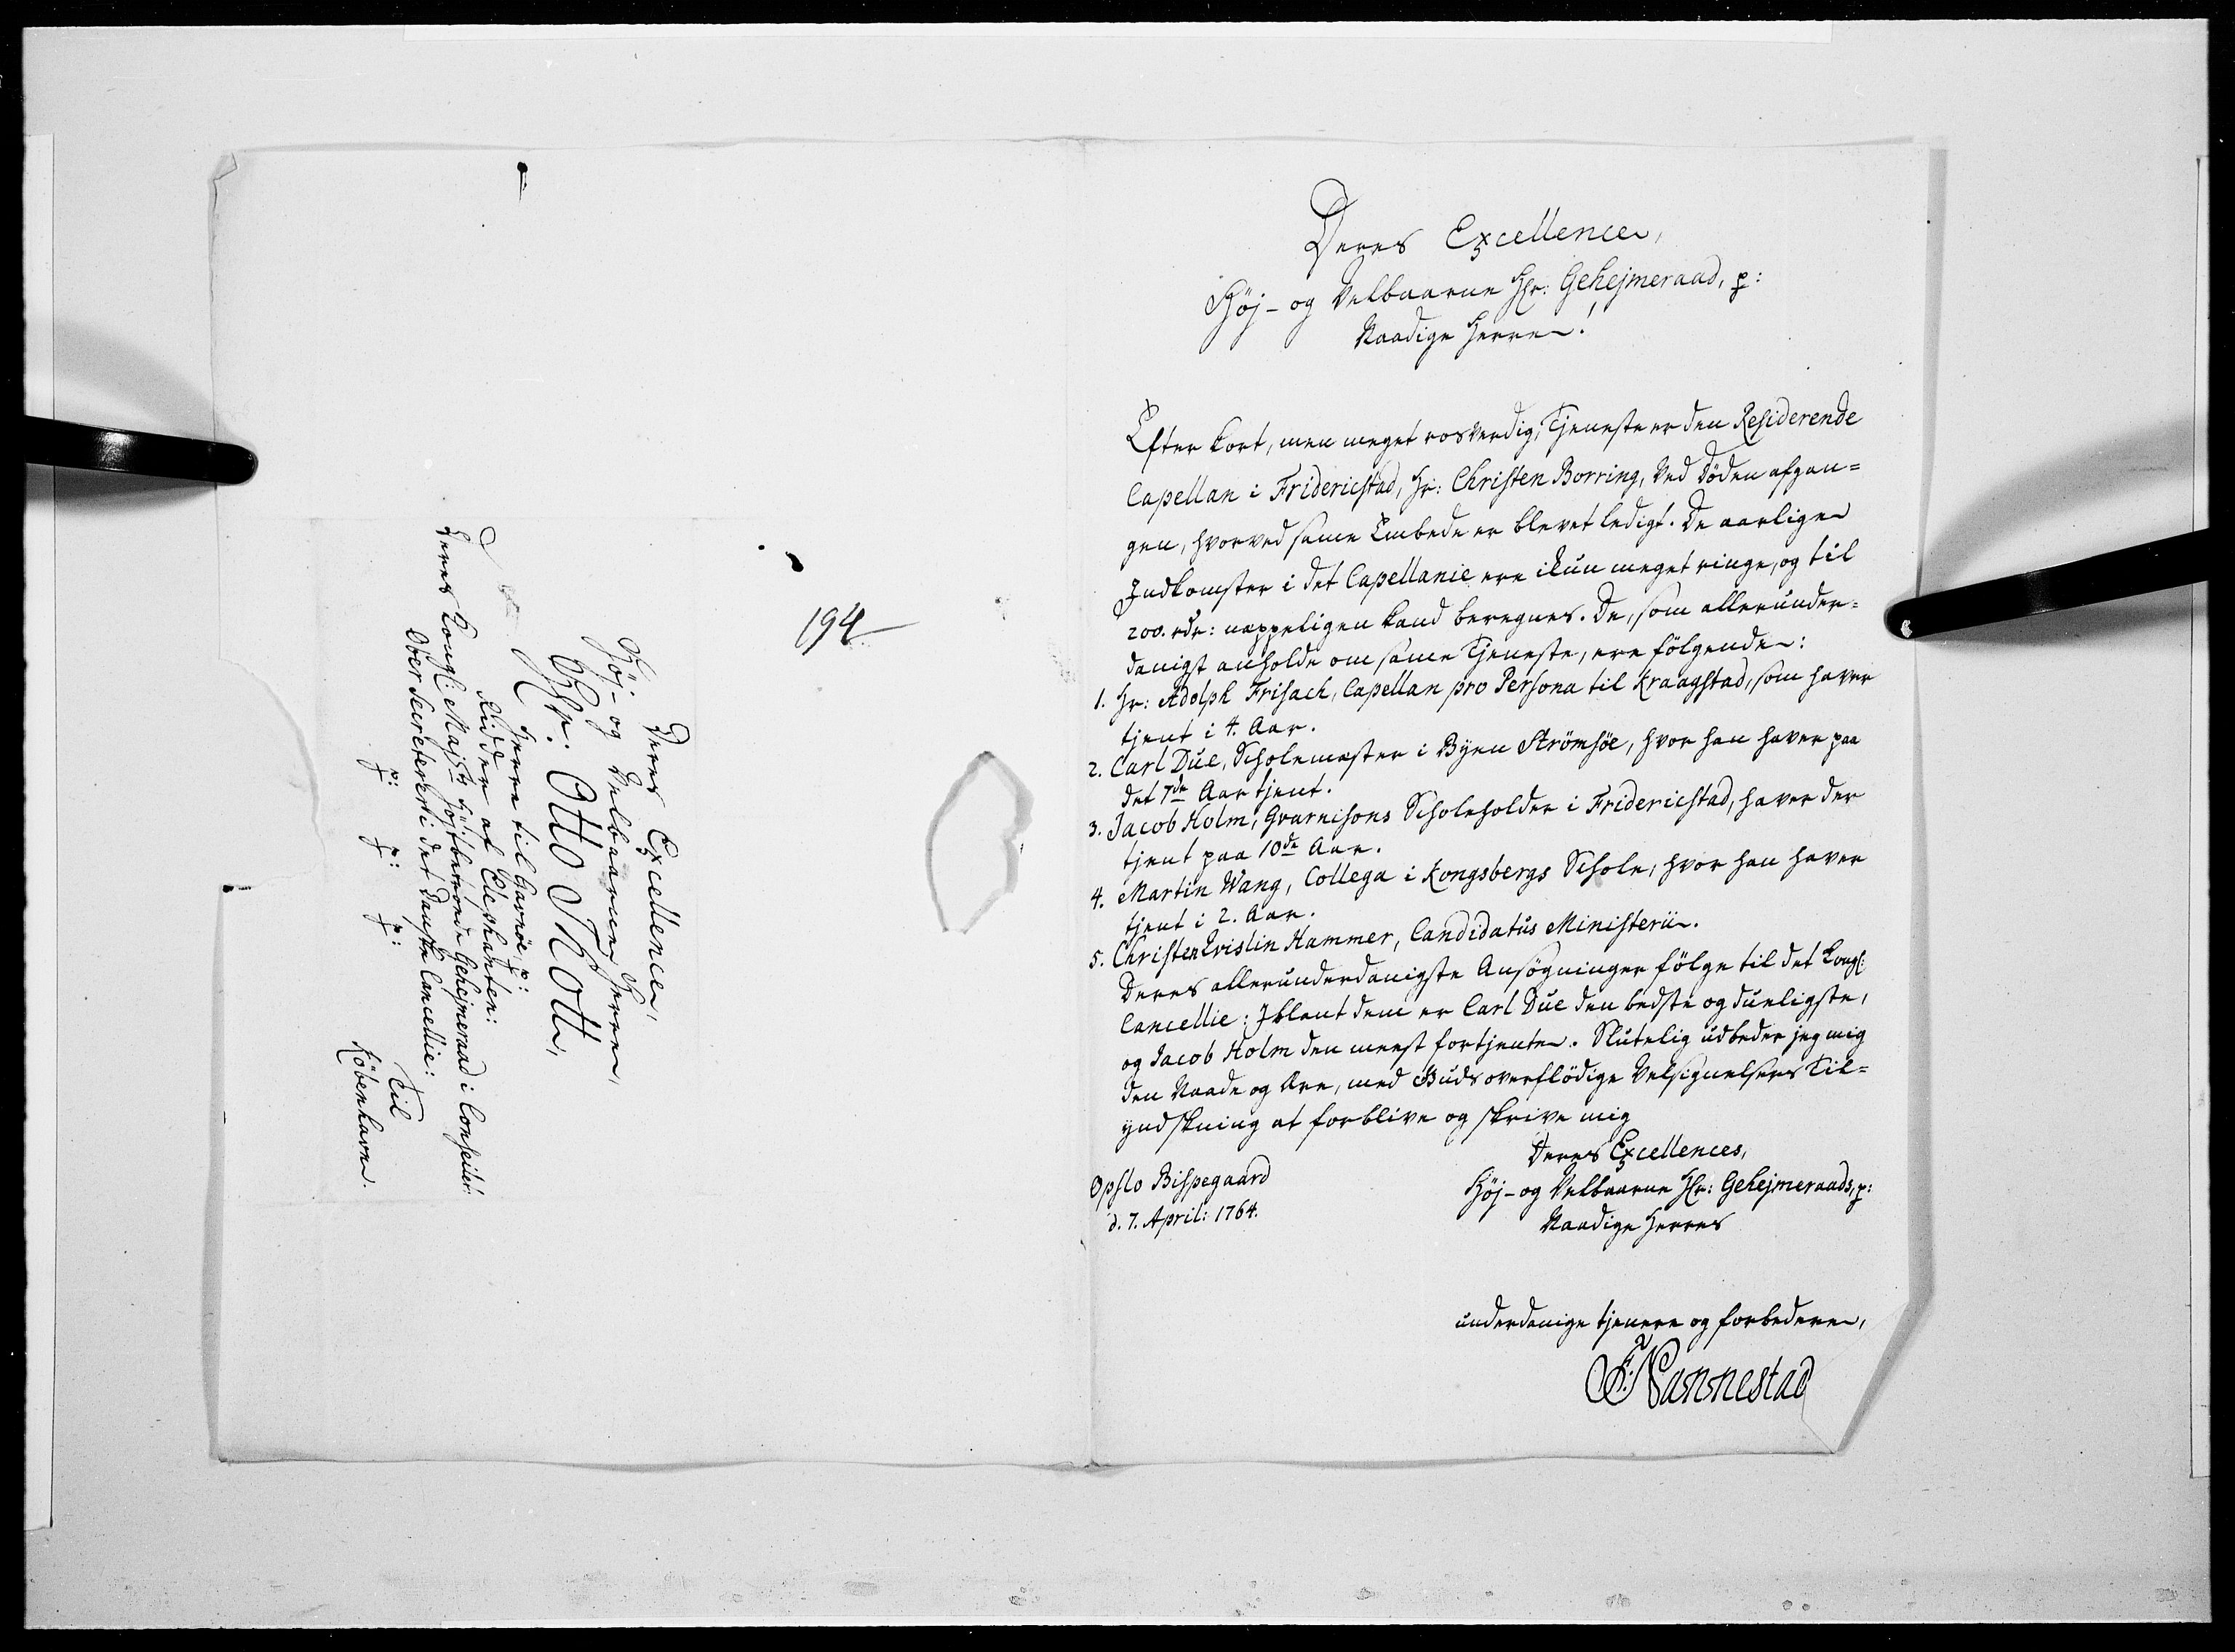 194
Deres Excellence,
Höj- og Velbaarne Herre,
Hr. Otto Thott,
Herre til Gavnöe, p:
Ridder af Elephanten:
Deres Kongl: Majts höjtbetroede Gehejmeraad i Conseilet:
Ober Secreterer i det Danske Cancellie:
p: p: p:
Til
Köbenhavn.
Deres Excellence,
Höj- og Velbaarne Hr: Gehejmeraad, p:
Naadige Herre!
Efter kort, men meget rosverdig, Tjeneste er den Residerende
Capellan i Fridericstad, Hr: Christen Borring, ved Döden afgan=
gen, hvorved samme Embede er blevet ledigt. De aarlige
Indkomster i det Capellanie ere ikun meget ringe, og til
200. rdr: neppeligen kand beregnes. De, som allerunder=
danigst anholde om samme Tjeneste, ere fölgende:
1. Hr: Adolph Frisach, Capellan pro Persona til Kraagstad, som haver
tjent i 4. Aar.
2. Carl Due, Scholemester i Byen Strömsöe, hvor han haver paa
det 7de Aar tjent.
3. Jacob Holm, Gvarnisons Scholeholder i Fridericstad, haver der
tjent paa 10de Aar.
4. Martin Wang, Collega i Kongsbergs Schole, hvor han haver
tjent i 2. Aar.
5. Christen Hammer, Candidatus Ministerii.
Deres allerunderdanigste Ansögninger fölge til det Kongl:
Cancellie: Iblant dem er Carl Due den bedste og dueligste,
og Jacob Holm den meest fortjente. Slutelig udbeder jeg mig
den Naade og Ære, med Guds overflödige Velsignelsers Til=
yndskning at forblive og skrive mig
Deres Excellences,
Höj- og Velbaarne Hr: Gehejmeraads, p:
Naadige Herres
Opslo Bispegaard
d. 7. April: 1764.
underdanige tjenere og forbedere,
F: Nannestad